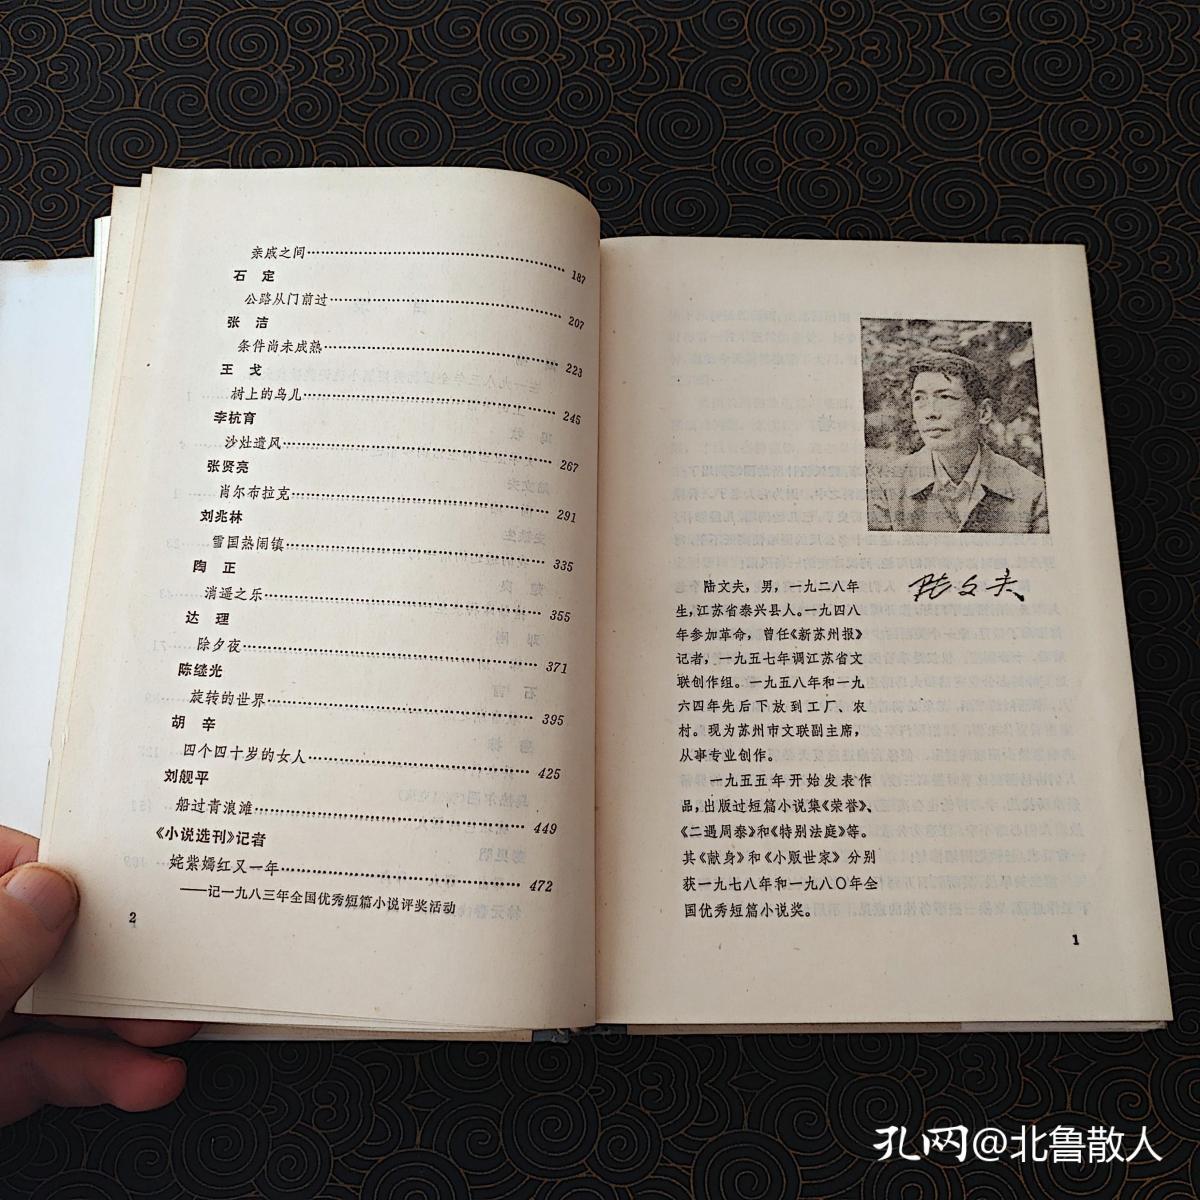 亲戚之间……187
石 定
公路从门前过……207
张 洁
条件尚未成熟……223
王 戈
树上的鸟儿……245
李杭育
沙灶遗风……267
张贤亮
肖尔布拉克……291
刘兆林
雪国热闹镇……335
陶 正
逍遥之乐……355
达 理
除夕夜……371
陈继光
旋转的世界……395
胡 辛
四个四十岁的女人……425
刘舰平
船过青浪滩……449
《小说选刊》记者
姹紫嫣红又一年……472
——记一九八三年全国优秀短篇小说评奖活动
2
陆文夫
陆文夫，男，一九二八年
生，江苏省泰兴县人。一九四八
年参加革命，曾任《新苏州报》
记者，一九五七年调江苏省文
联创作组。一九五八年和一九
六四年先后下放到工厂、农
村。现为苏州市文联副主席，
从事专业创作。
一九五五年开始发表作
品，出版过短篇小说集《荣誉》、
《二遇周泰》和《特别法庭》等。
其《献身》和《小贩世家》分别
获一九七八年和一九八〇年全
国优秀短篇小说奖。
1
孔网@北鲁散人